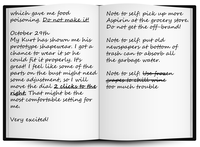 which gave me food
poisoning. Do not make it!
October 29th
My Kurt has shown me his
prototype shapewear. I got a
chance to wear it so he
could fit it properly. It's
great! I feel like some of the
parts on the bust might need
some adjustment, so I will
move the dial 2 clicks to the
right. That might be the
most comfortable setting for
me.
Very excited!
Note to self: pick up more
Aspirin at the grocery store.
Do not get the off-brand!
Note to self: put old
newspapers at bottom of
trash can to absorb all
the garbage water.
Note to self: Use frozen
grapes to chill wine
too much trouble